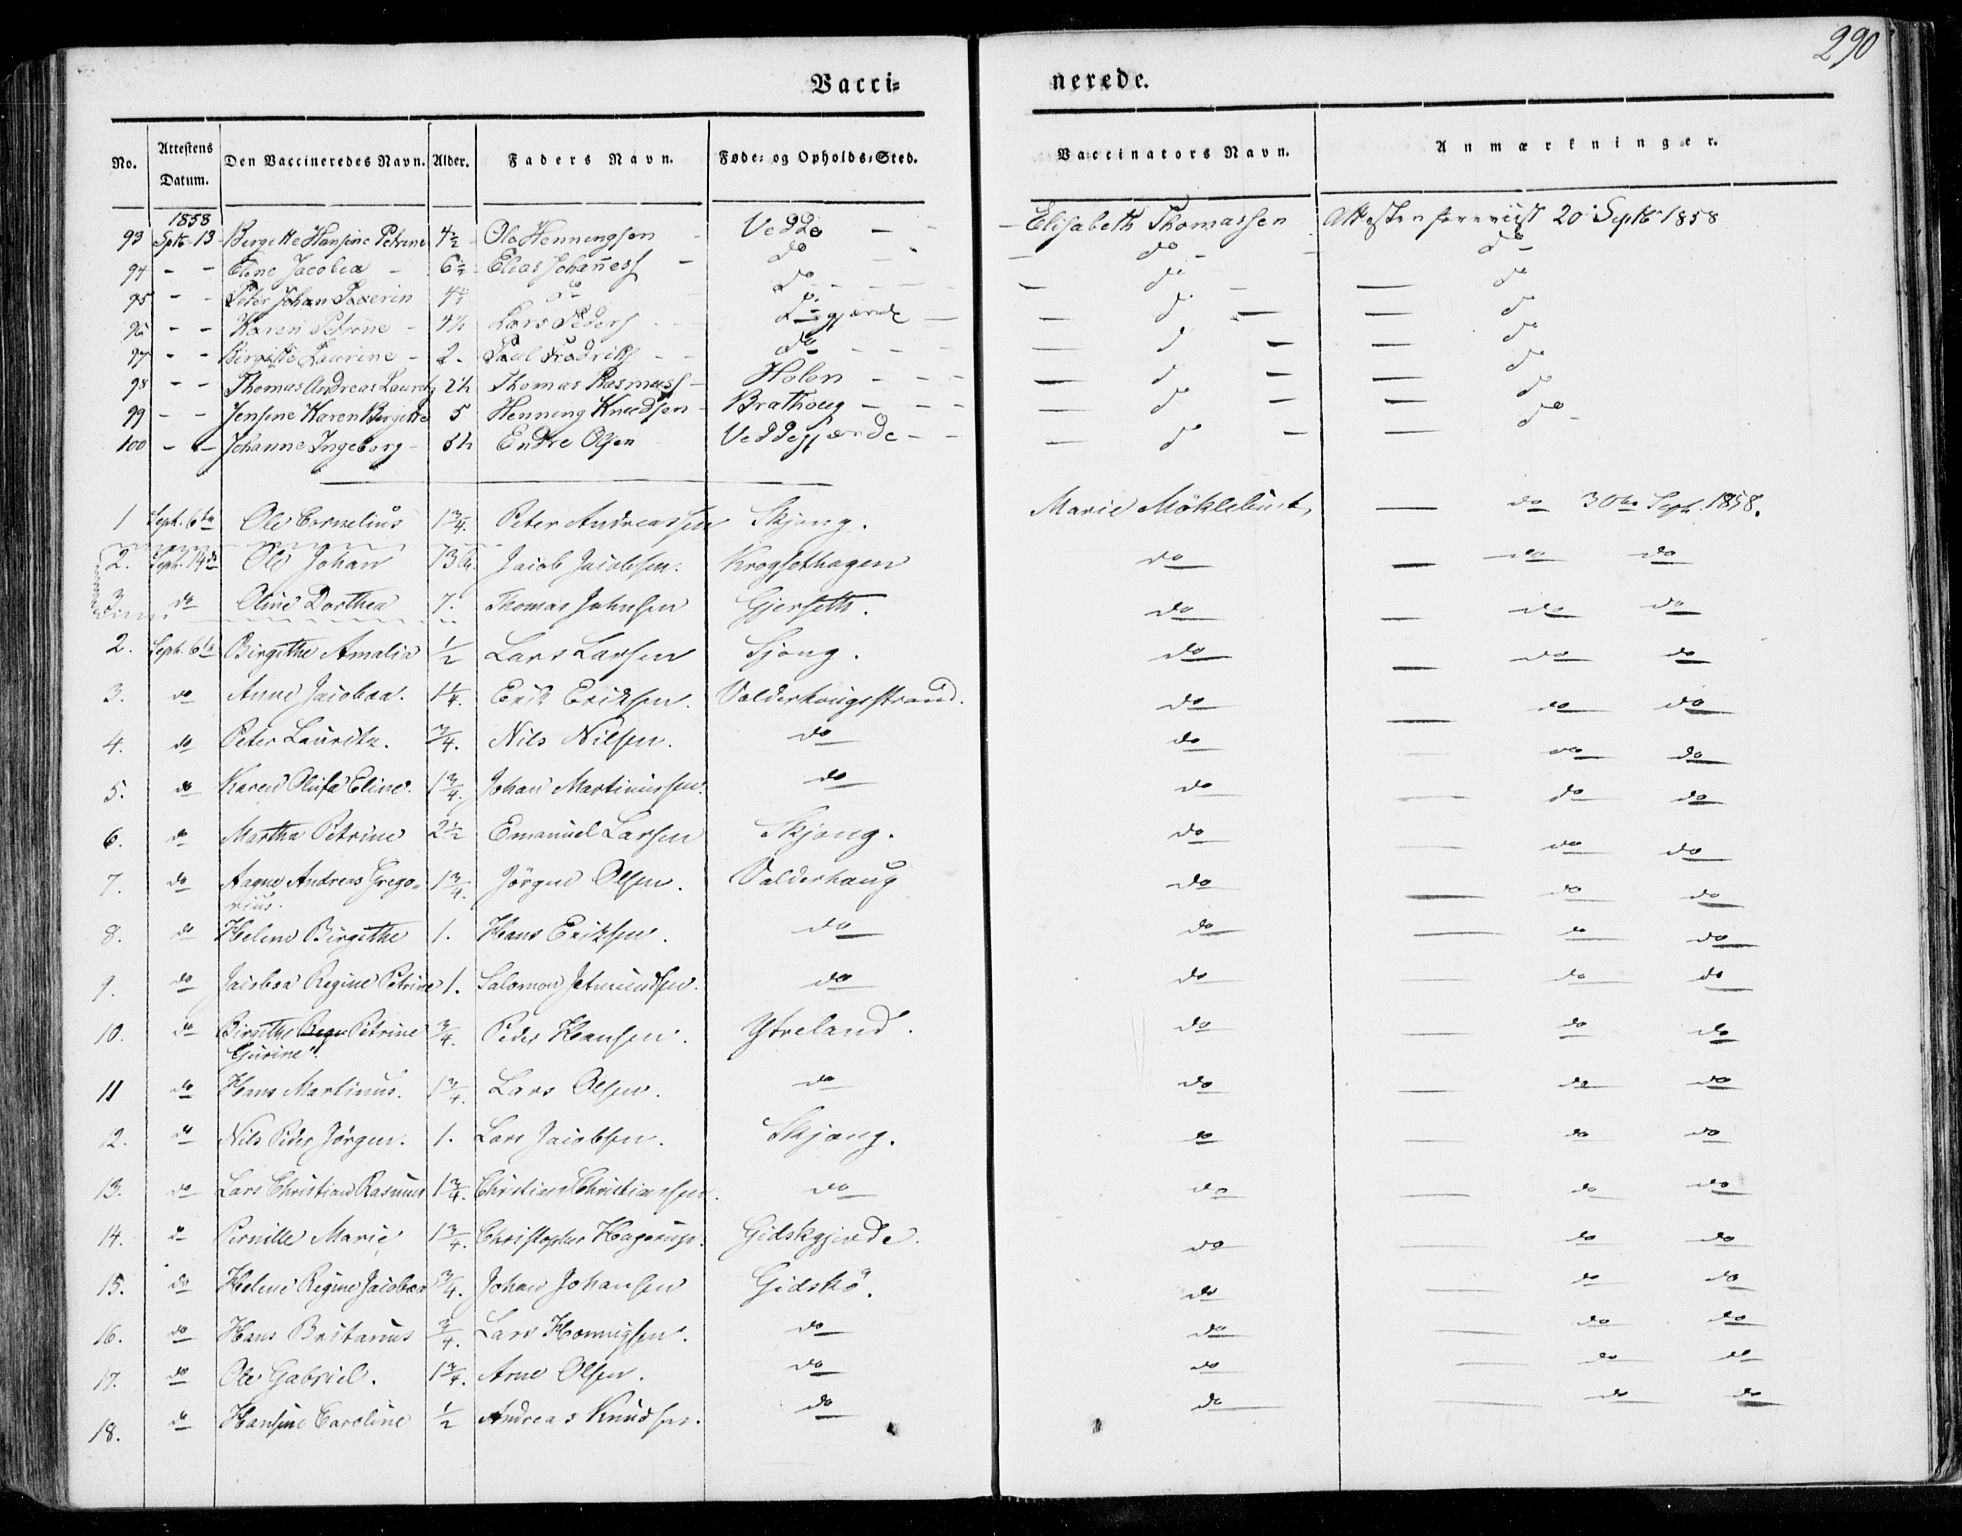 290
Vacci= nerede.
No. Attestens Datum. Den Vaccineredes Navn. Alder. Faders Navn. Føde= og Opholds=Sted. Vaccinators Navn. Anmærkninger.
1858
93 Sptb 13 Bergitte Hansine Petrine 4½ Ole Henningsen Vedde Elisabeth Thomassen Attesten foreviist 20 Septb 1858
94 - - Eline Jacobea 6½ Elias Johaness do do do
95 - - Peter Johan Severin 4½ do do do do
96 - - Karen Petrine 4½ Lars Peders do gjerde do do
97 - - Birgitte Laurine 2. Paul Fredriks do do do
98 - - Thomas Andreas Lauritz 2½ Thomas Rasmuss Holen do do
99 - - Jensine Karen Bergitte 5 Henning Knudsen Brathoug do do
100 - - Johanne Ingeborg 3½ Endre Olsen Veddegjerde do do
1 Sept. 6te Ole Cornelius 1¾. Peter Andreassen Skjong. Marie Möklebust do 30te Sept. 1858.
2. Sept. 14de Ole Johan 13 Jacob Jacobsen. Krogsethagen do do do
3 do Oline Dorthea 7. Thomas Johnsen Gjerseth. do do do
2. Sept. 6te Birgithe Amalia ½ Lars Larsen Sjong. do do do
3. do Anne Jacobea. 1¼. Erik Eriksen. Valderhougsstrand. do do do
4. do Peter Lauritz. ¾. Nils Nilsen. do do do do
5. do Karen Olufa Eline. 1¾. Johan Martinussen. do do do do
6. do Martha Petrine 2½ Emanuel Larsen Skjong. do do do
7. do Aagne Andreas Gregorius. 1¾. Jörgen Olsen. Valderhaug do do do
8. do Helene Birgithe 1. Hans Eriksen. do do do do
9. do Jacobea Regine Petrine 1. Salomon Jetmundsen. do do do do
10. do Birgithe Petrine Gurine. ¾. Peder Hansen. Ytreland. do do do
11 do Hans Martinus. 1¾. Lars Olsen. do do do do
12. do Nils Peder Jörgen. 1. Lars Jacobsen. Skjong. do do do
13. do Lars Christian Rasmus 1¾. Christian Christianssen. do do do do
14. do Pernille Marie 1¾. Christopher Hagerup. Gidskgjerde. do do do
15. do Helene Regine Jacobea ¾. Johan Johansen Gidskö. do do do
16. do Hans Britanus ¾. Lars Hennigsen. do do do do
17. do Ole Gabriel. 1¾. Arne Olsen. do do do do
18. do Hansine Caroline ½ Andreas Knudsen. do do do do